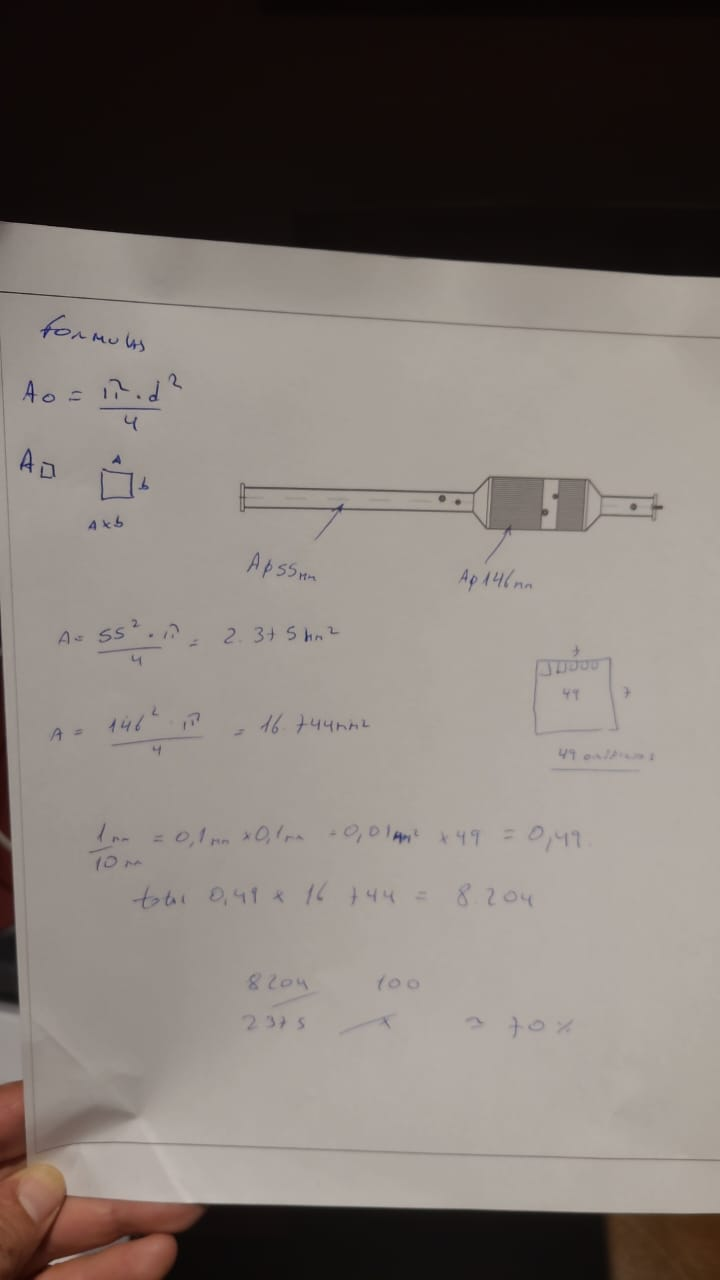 Formulas
A○ = π·d²/4
A□
A
b
A x b
Aφ55mm
Aφ146mm
A = 55²·π/4 = 2.375mm²
7
49
7
A = 146²·π/4 = 16.744mm²
49 orificios
1mm/10mm = 0,1mm x 0,1mm = 0,01mm² x 49 = 0,49.
total 0,49 x 16 744 = 8.204
8204 100
2375 x ≈ 70%